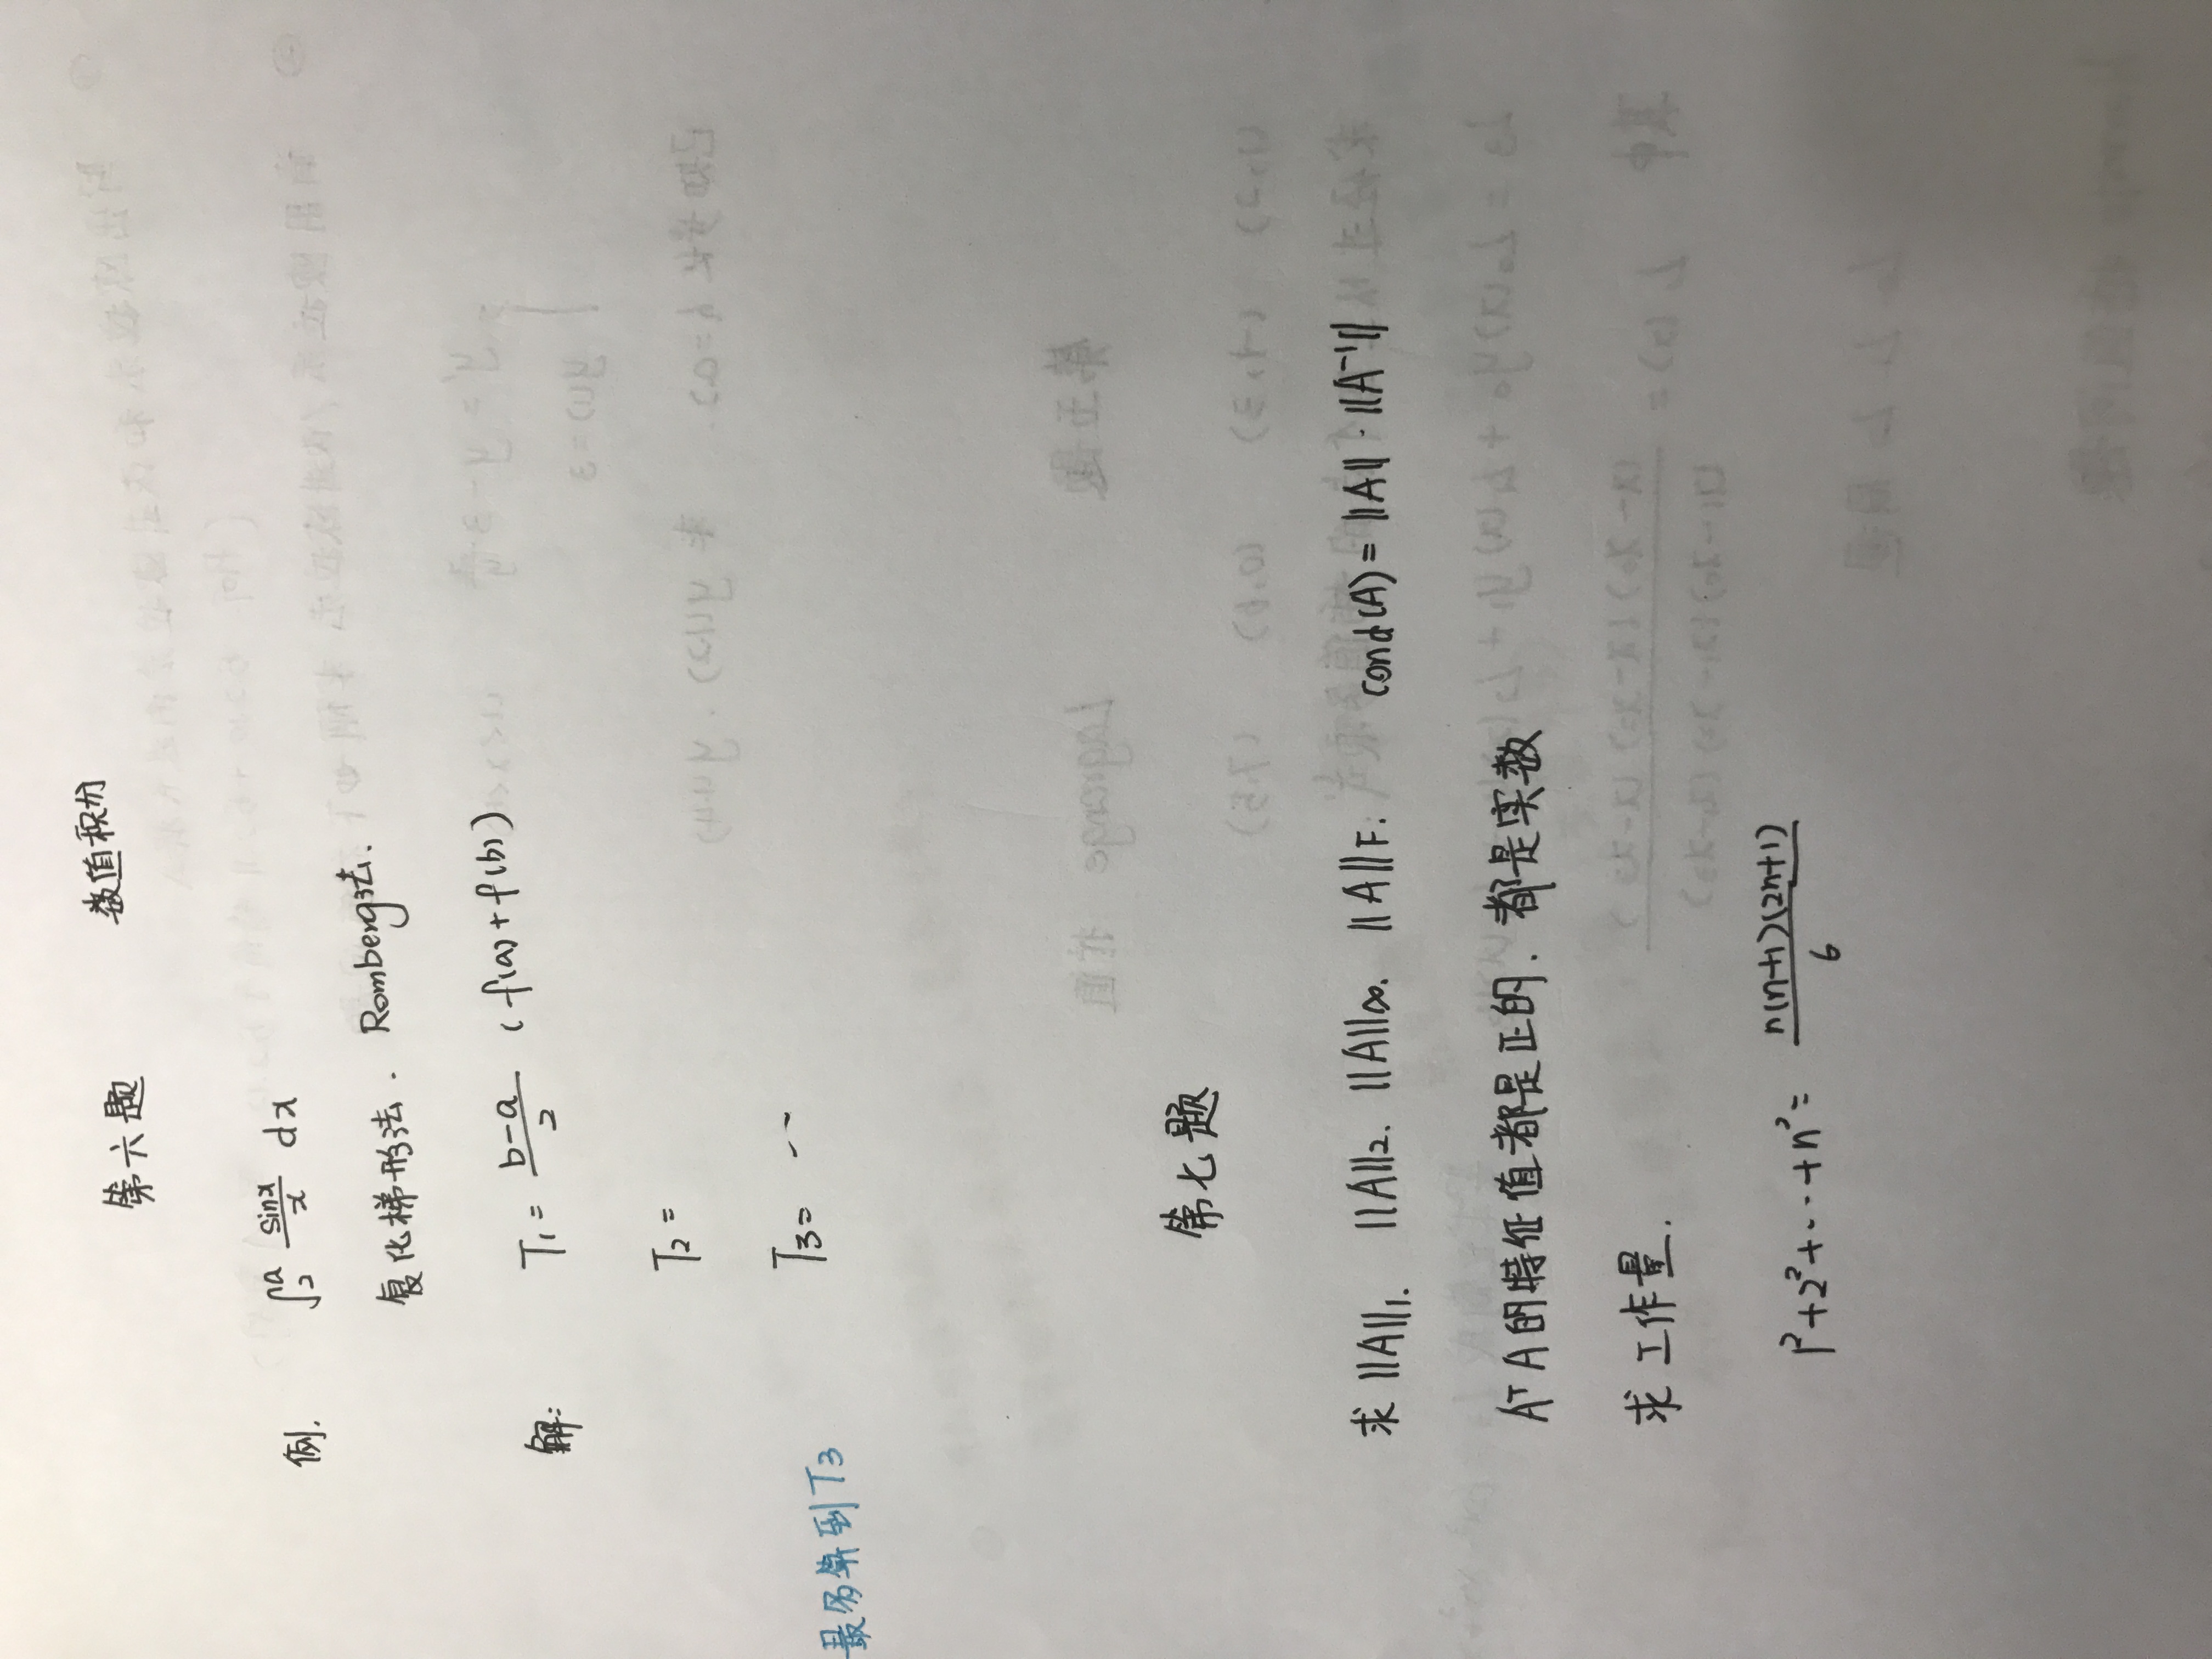 第六题 数值积分
例. ∫₂ᵃ sinx/x dx
复化梯形法. Romberg法.
解: T₁ = b-a/2 (f(a)+f(b))
T₂ =
T₃ = …
最多算到T₃
第七题
求 ||A||₁. ||A||₂. ||A||∞. ||A||F. cond(A) = ||A||·||A⁻¹||
AᵀA的特征值都是正的. 都是实数
求工作量.
1²+2²+…+n² = n(n+1)(2n+1)/6